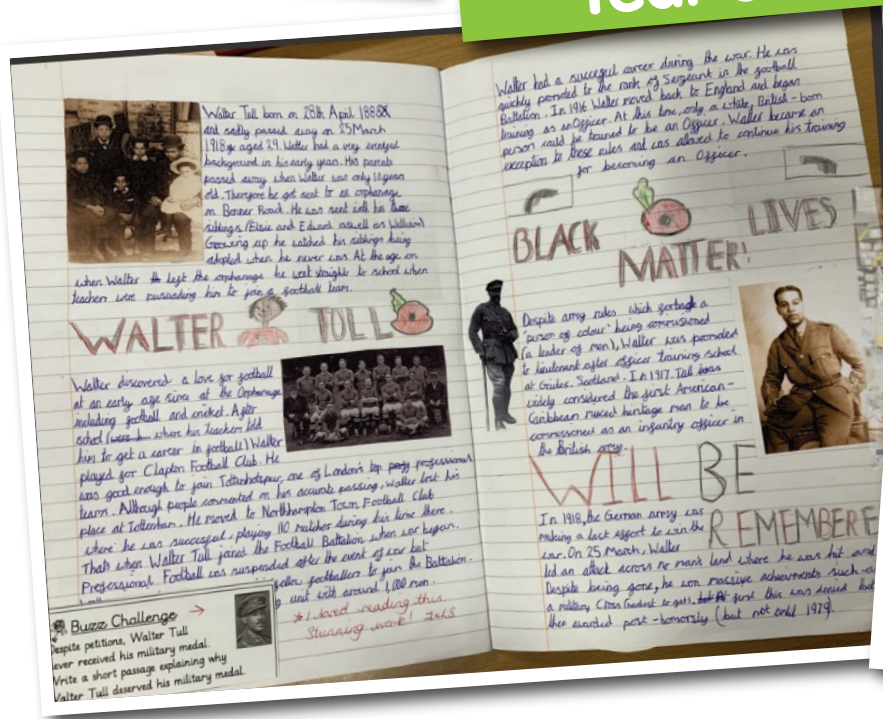 Walter Tull born on 28th April 1888
and sadly passed away on 25 March
1918 aged 29. Walter had a very eventful
background in his early years. His parents
passed away when Walter was only 10 years
old. Therefore he got sent to an orphanage
on Bonner Road. He was sent with his three
siblings (Elsie and Edward aswell as William)
Growing up he watched his siblings being
adopted when he never was. At the age on
when Walter left the orphanage he went straight to school when
teachers were persuading him to join a football team.
WALTER TULL
Walter discovered a love for football
at an early age since at the Orphanage
including football and cricket. After
school where his teachers told
him to get a career in football) Walter
played for Clapton Football Club. He
was good enough to join Tottenhotspur, one of London's top professional
teams. Although people commented on his accurate passing, Walter lost his
place at Tottenham. He moved to Northhampton Town Football Club
where he was succesful, playing 110 matches during his time there.
Thats when Walter Tull joined the Football Battalion when war began.
Professional Football was suspended after the event of war but
fellow footballers to join the Battalion.
unit with around 1,000 men.
Buzz Challenge
espite petitions, Walter Tull
ever received his military medal.
Write a short passage explaining why
Walter Tull deserved his military medal.
*I loved reading this.
Stunning work!
Walter had a succesful career during the war. He was
quickly promoted to the rank of Sergeant in the football
Battalion. In 1916 Walter moved back to England and began
training as an Officer. At this time, only a white, British-born
person could be trained to be an Officer. Walter became an
exception to these rules and was allowed to continue his training
for becoming an Officer.
BLACK LIVES
MATTER!
Despite army rules which forbade a
'person of colour' being commissioned
(a leader of men), Walter was promoted
to lieutenant after officer training school
at Scotland. In 1917. Tull was
widely considered the first American-
Caribbean mixed heritage man to be
commissioned as an infantry officer in
the British army.
WILL BE
REMEMBERE
In 1918, the German army was
making a last effort to win the
war. On 25 March, Walter
led an attack across no man's land where he was hit and
Despite being gone, he won massive achievments such
a military Cross at first this was denied but
then awarded post-honorsly (but not until 1979).